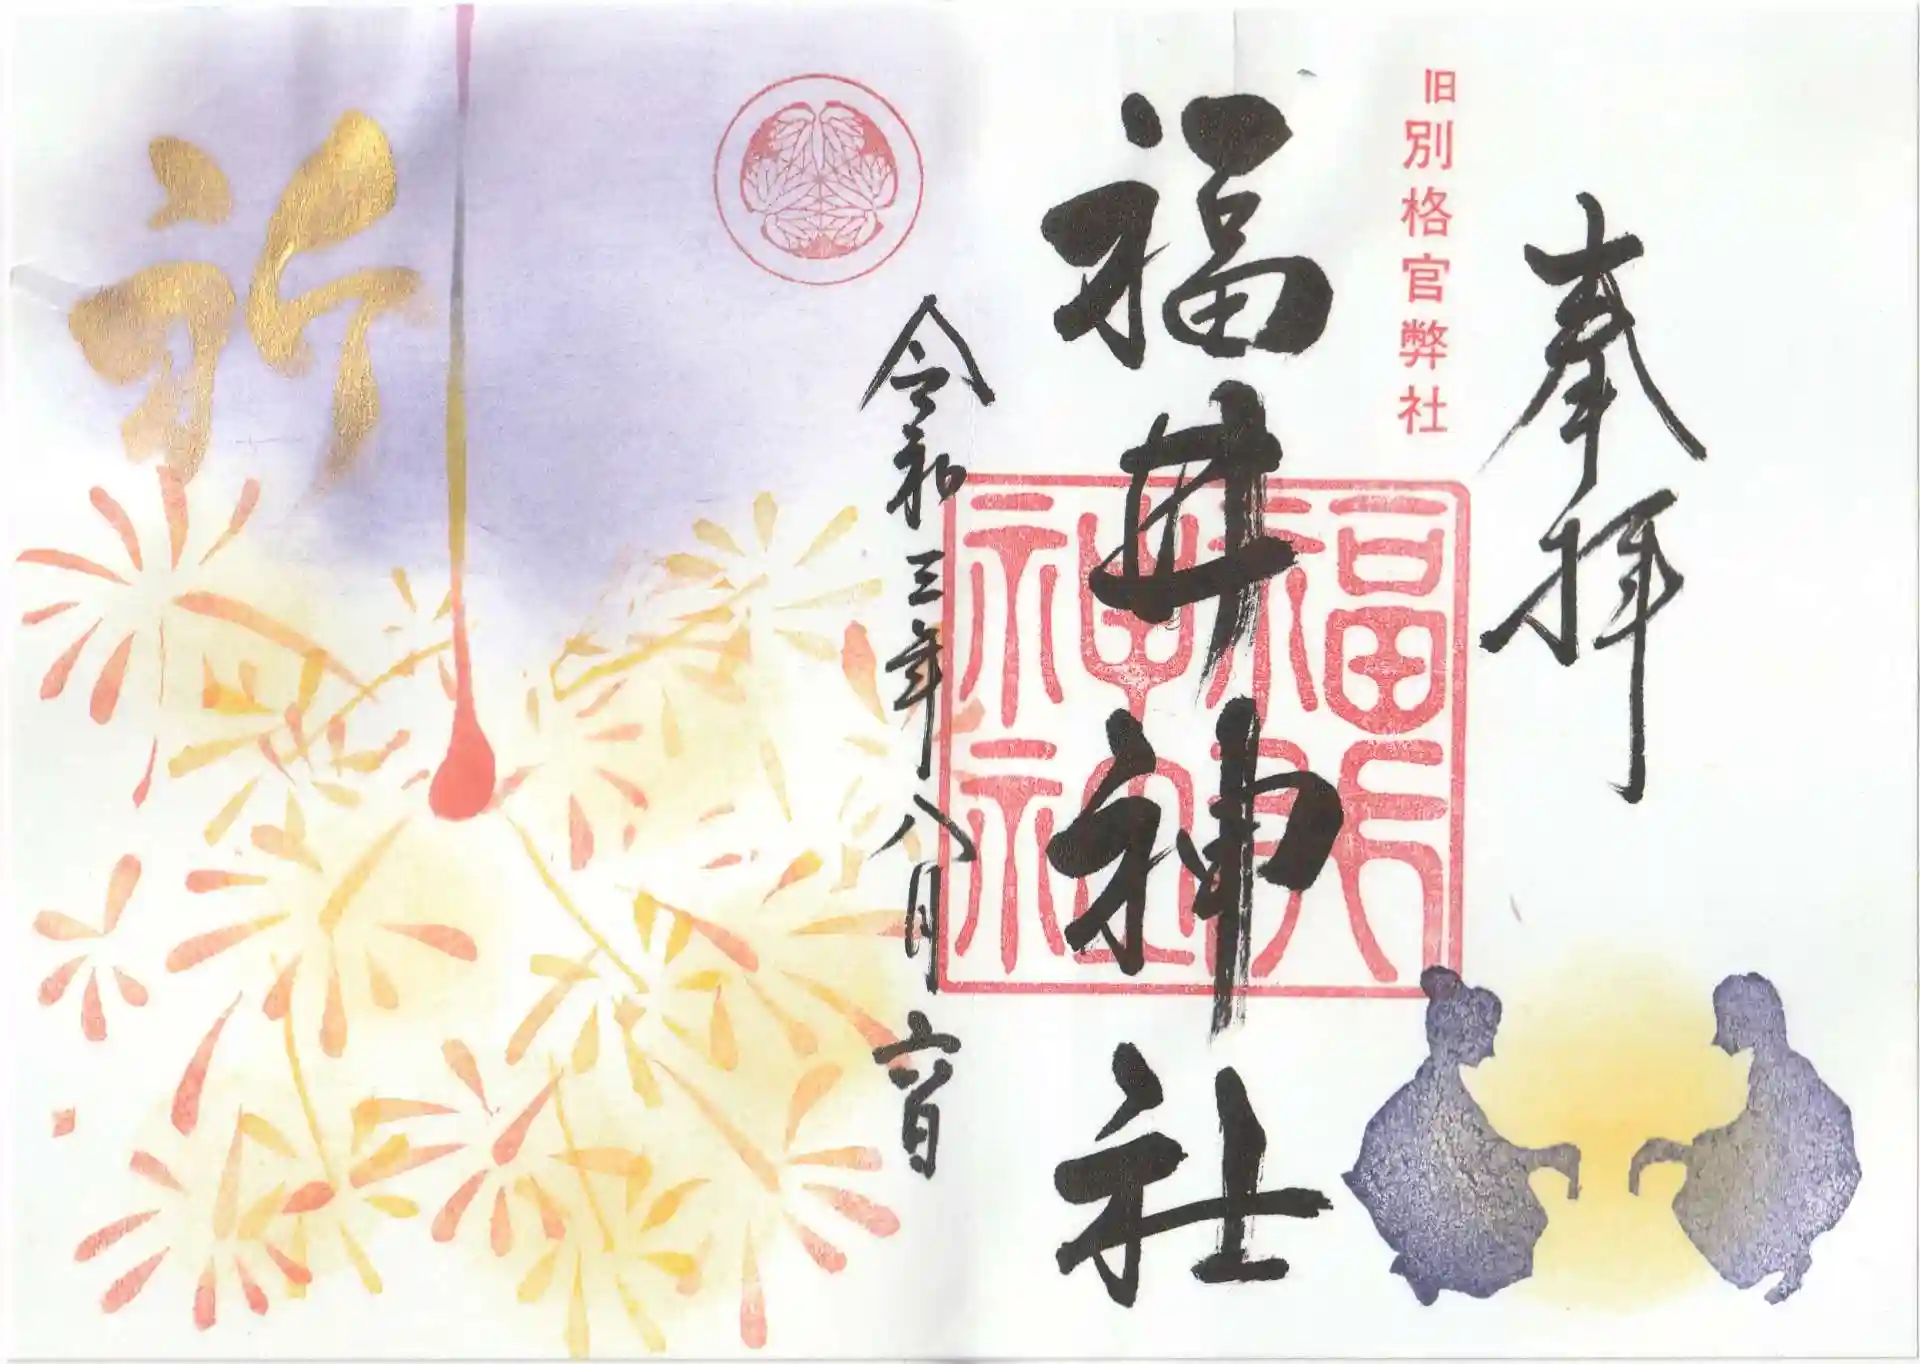 奉拝
旧別格官弊社
福井神社
福井神社
令和三年八月
祈